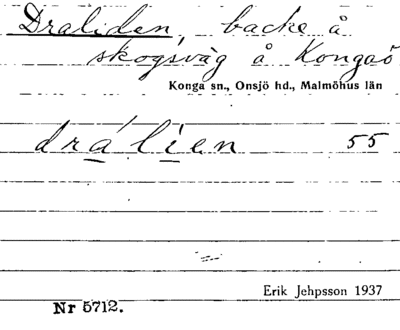 Draliden, backe å
skogsväg å Kongaö
Konga sn., Onsjö hd., Malmöhus län
drálíen 55
Erik Jehpsson 1937
Nr 5712.